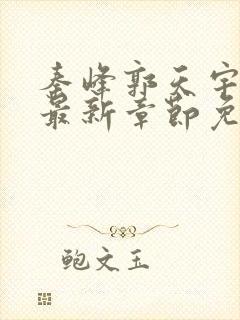 秦峰郭天宇
最新章节免
鲍文玉